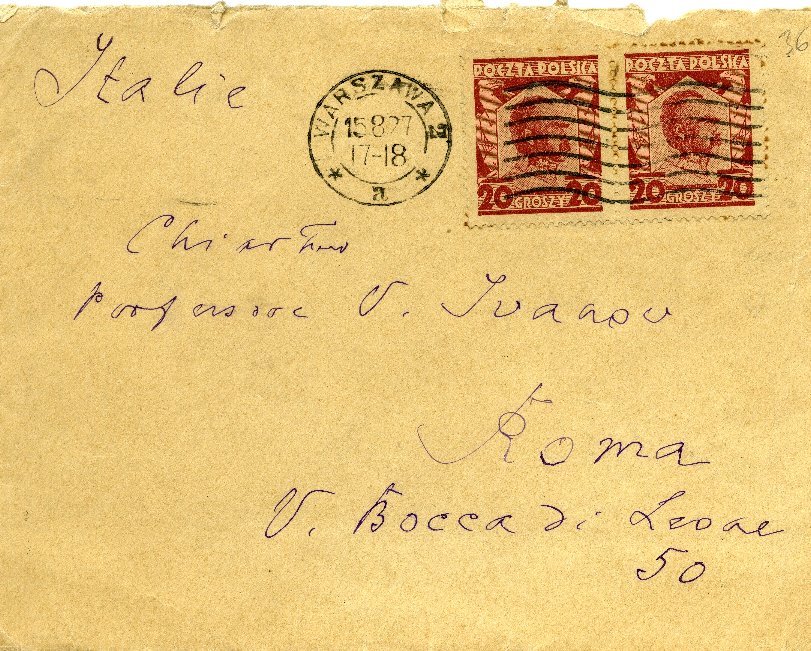 Italie
36
WARSZAWA 2
15 8 27
17-18
* a *
POCZTA POLSKA POCZTA POLSKA
20 GROSZY 20 20 GROSZY 20
professore V. Ivanov
Roma
V. Bocca di Leone
50